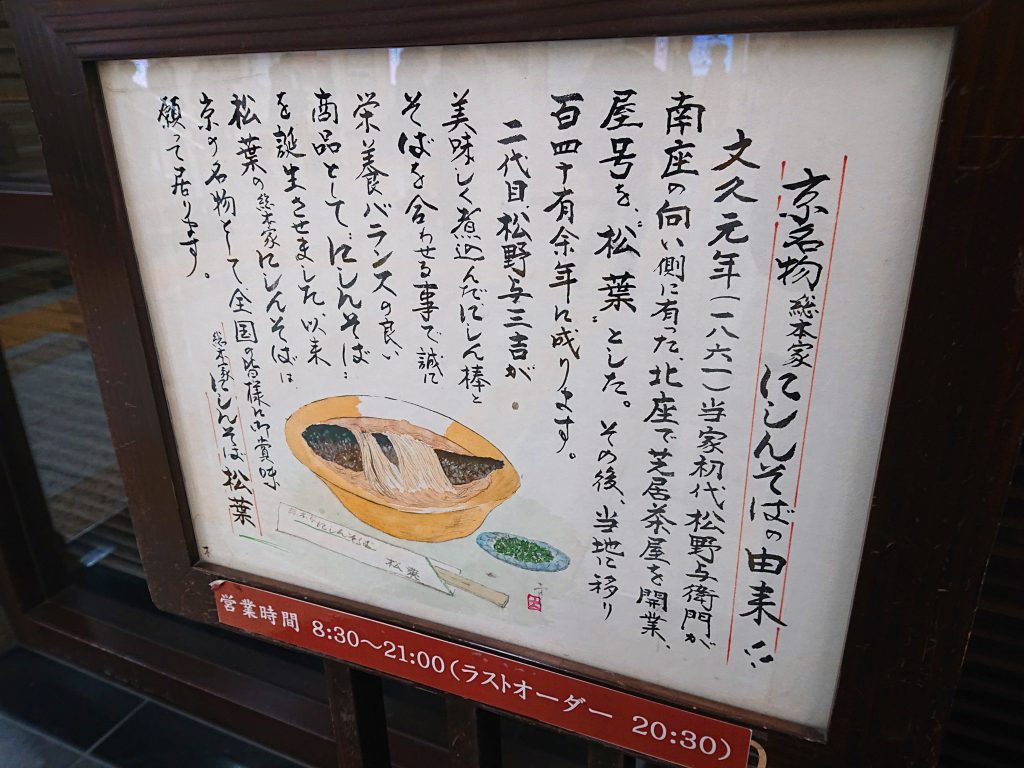 京名物総本家にしんそばの由来!!
文久元年(一八六一)当家初代松野与衛門が
南座の向い側に有った、北座で芝居茶屋を開業、
屋号を、“松葉”とした。その後、当地に移り
百四十有余年に成ります。
二代目松野与三吉が
美味しく煮込んだにしん棒と
そばを合わせる事で誠に
栄養バランスの良い
商品として、にしんそば…
を誕生させました、以来
松葉の総本家にしんそばは
京の名物として全国の皆様に御賞味
願って居ります。
総本家にしんそば松葉
にしんそば
松葉
営業時間 8:30~21:00(ラストオーダー 20:30)